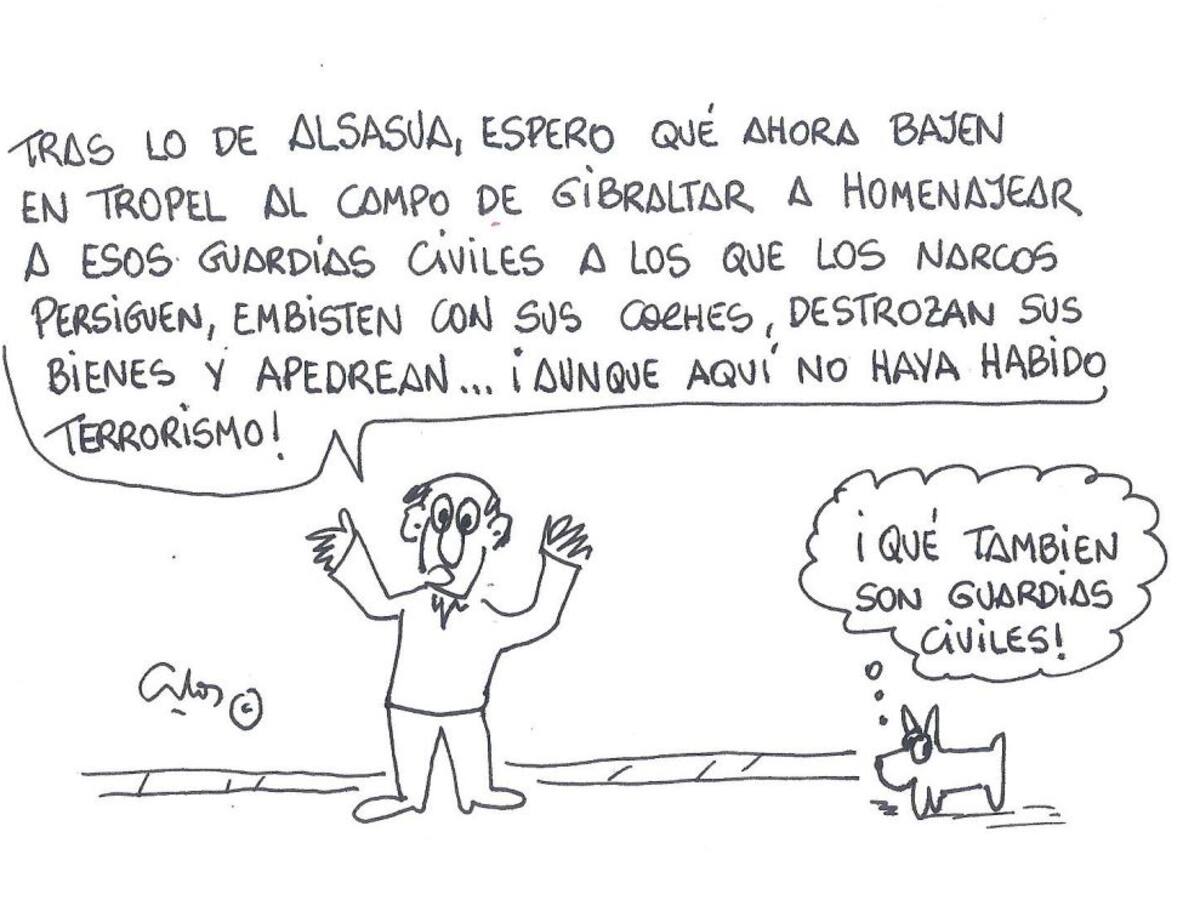 TRAS LO DE ALSASUA, ESPERO QUÉ AHORA BAJEN
EN TROPEL AL CAMPO DE GIBRALTAR A HOMENAJEAR
A ESOS GUARDIAS CIVILES A LOS QUE LOS NARCOS
PERSIGUEN, EMBISTEN CON SUS COCHES, DESTROZAN SUS
BIENES Y APEDREAN... ¡AUNQUE AQUÍ NO HAYA HABIDO
TERRORISMO!
¡QUÉ TAMBIEN
SON GUARDIAS
CIVILES!
©